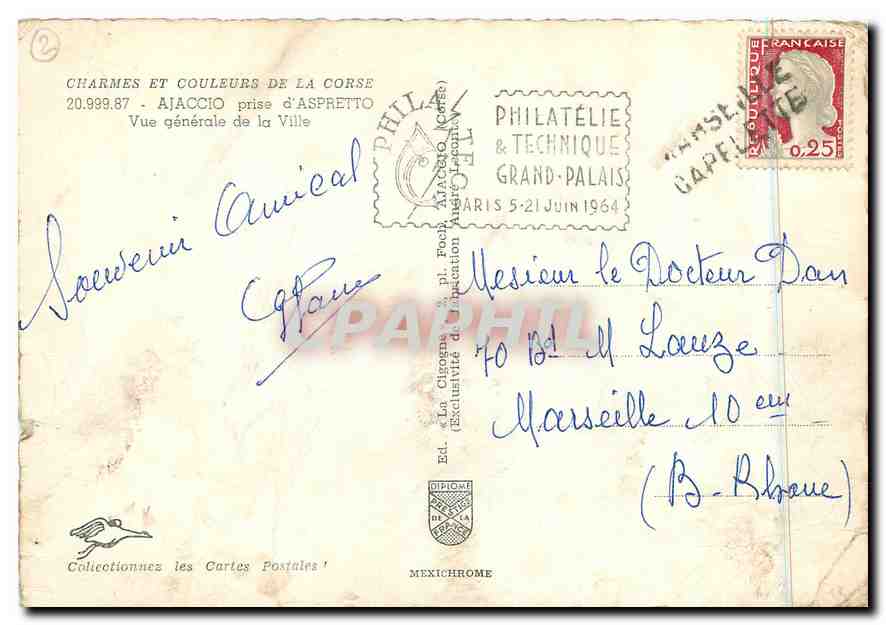 2
CHARMES ET COULEURS DE LA CORSE
20.999.87 - AJACCIO prise d'ASPRETTO
Vue générale de la Ville
Souvenir Amical
PHILATEC
PHILATÉLIE
& TECHNIQUE
GRAND-PALAIS
PARIS 5-21 JUIN 1964
RÉPUBLIQUE FRANÇAISE
0,25
POSTES
MARSEILLE
CAPELETTE
Mesieur le Docteur Dan
70 Bd M Lauze
Marseille 10 em
(B-Rhone)
Ed. «La Cigogne», 2, pl. Foch, AJACCIO (Corse)
(Exclusivité de fabrication André Leconte)
CPAPHIL
DIPLOME
PRESTIGE
DE LA
FRANCE
MEXICHROME
Collectionnez les Cartes Postales !